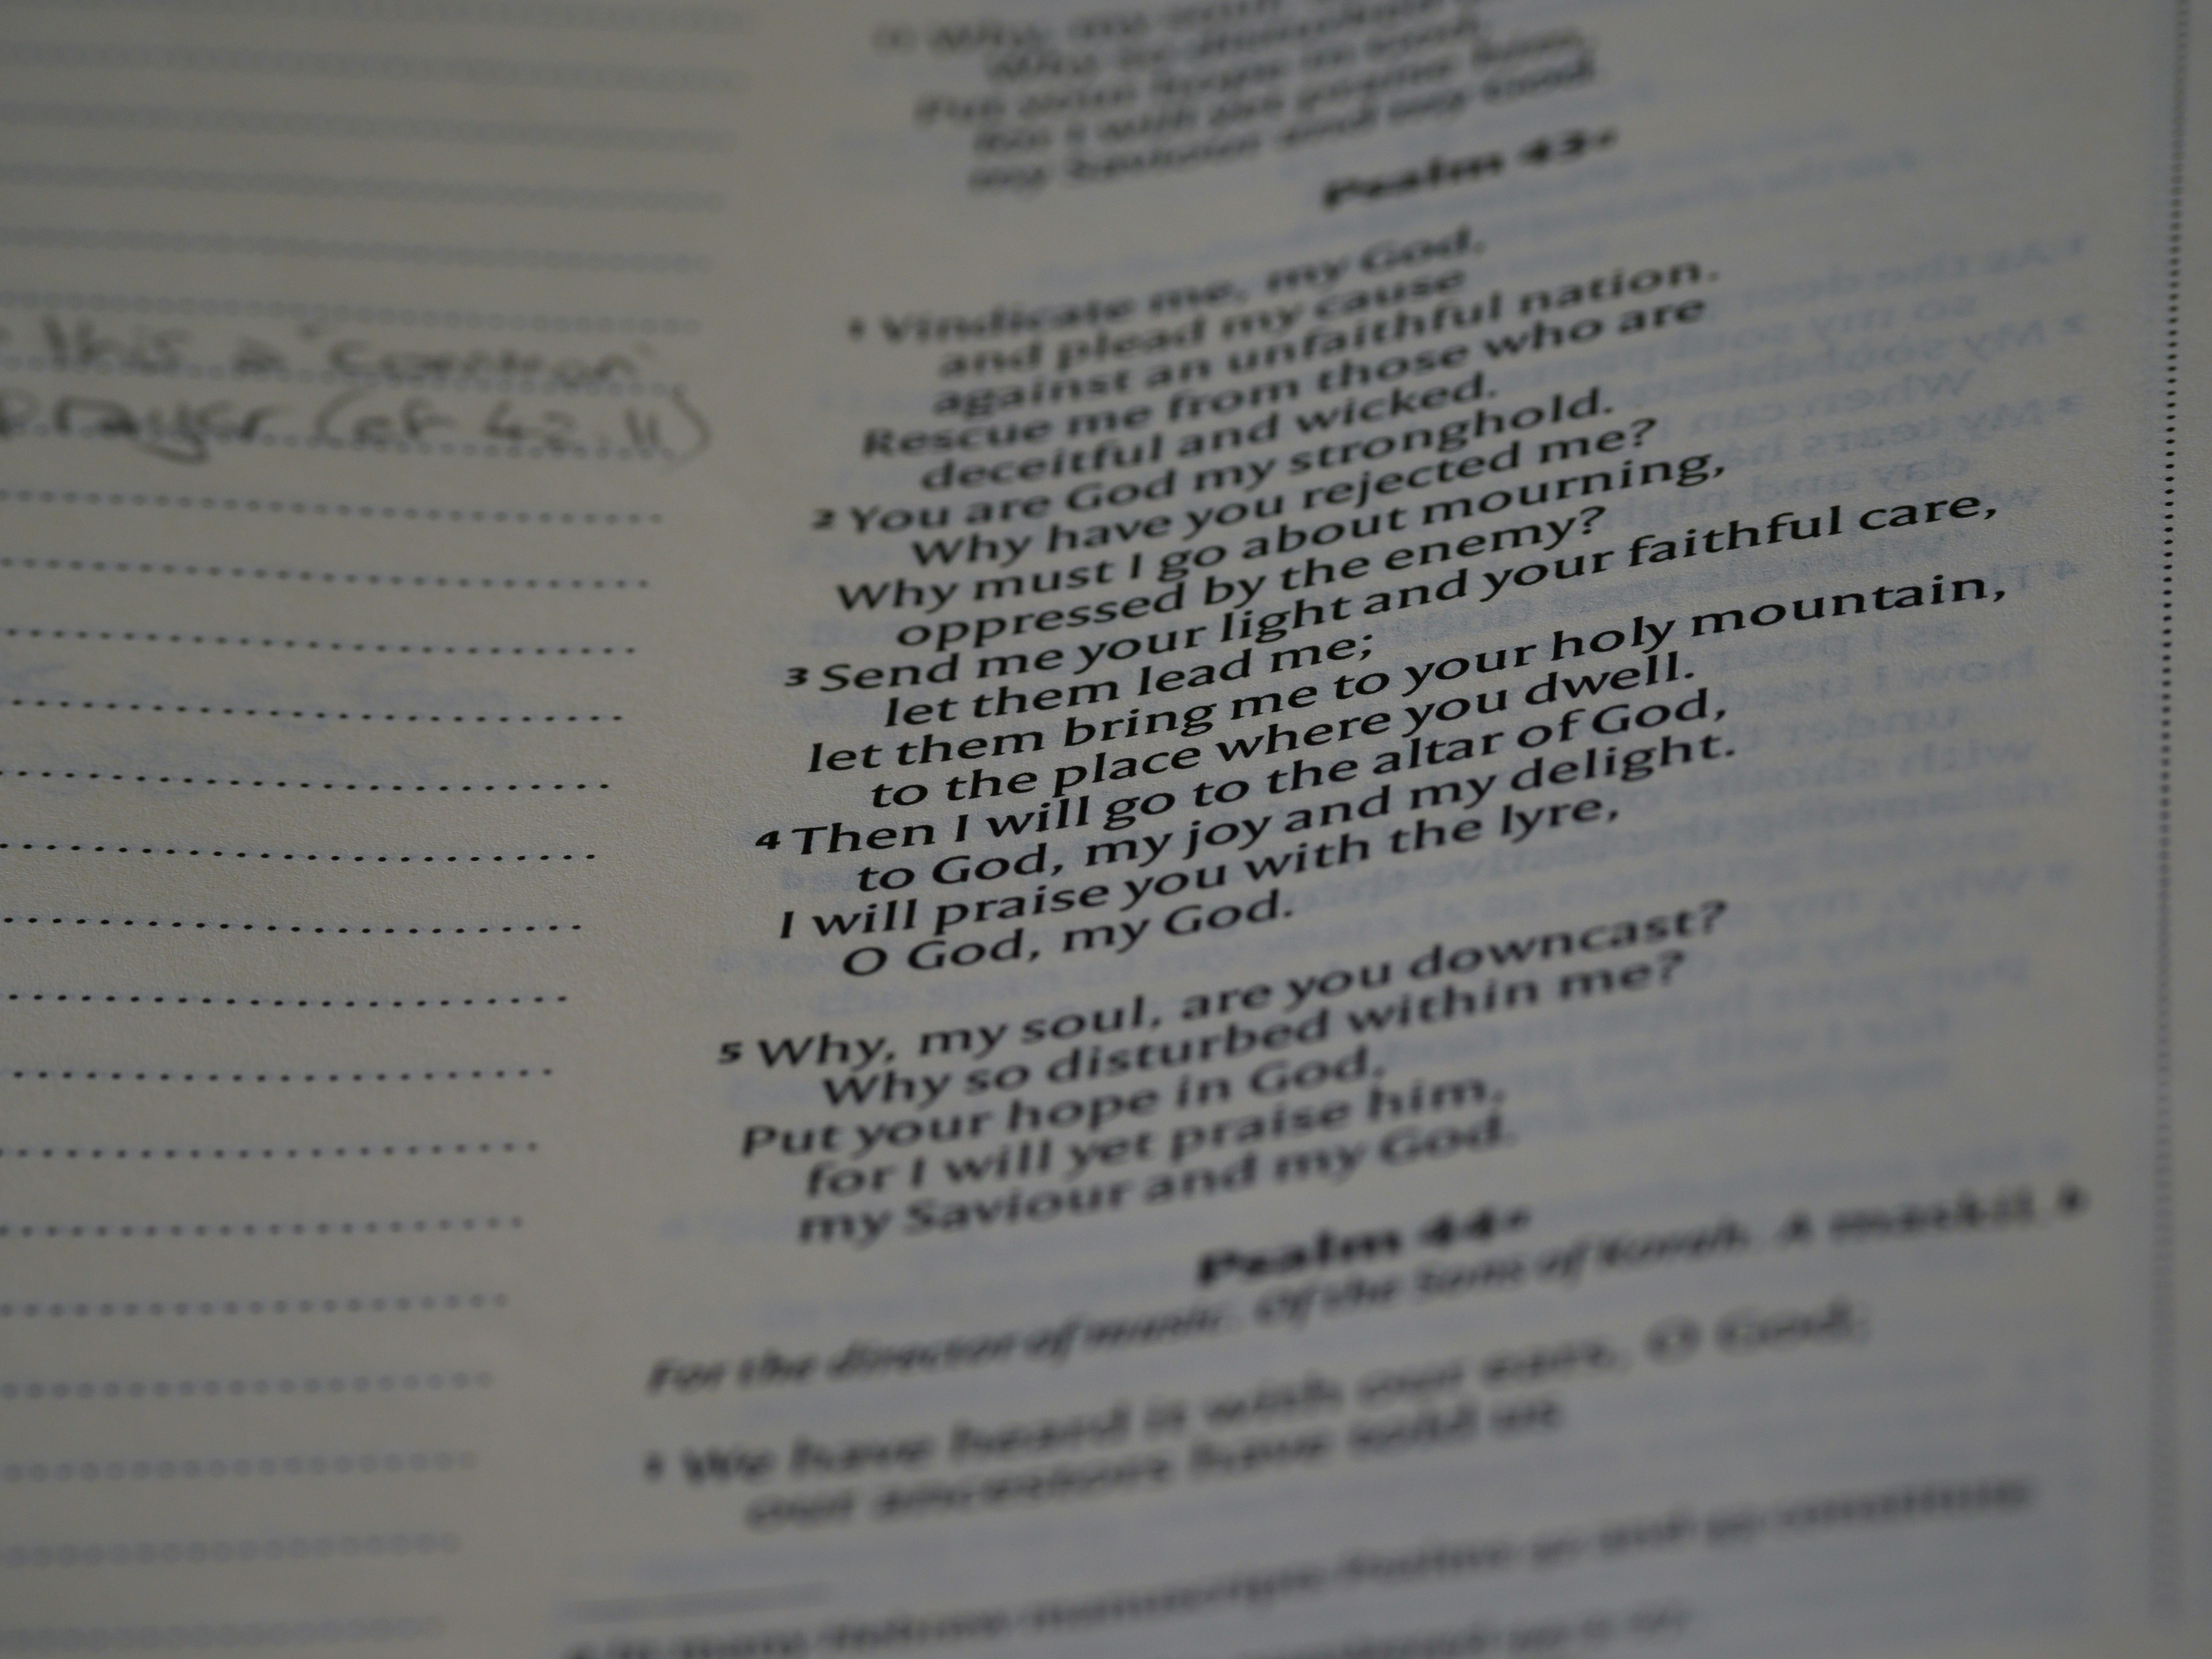 this a "common"
prayer (cf 42.11)
11 Why, my soul,
Put your hope in God,
for I will yet praise him,
my Saviour and my God.
Psalm 43a
1 Vindicate me, my God,
and plead my cause
against an unfaithful nation.
Rescue me from those who are
deceitful and wicked.
2 You are God my stronghold.
Why have you rejected me?
Why must I go about mourning,
oppressed by the enemy?
3 Send me your light and your faithful care,
let them lead me;
let them bring me to your holy mountain,
to the place where you dwell.
4 Then I will go to the altar of God,
to God, my joy and my delight.
I will praise you with the lyre,
O God, my God.
5 Why, my soul, are you downcast?
Why so disturbed within me?
Put your hope in God,
for I will yet praise him,
my Saviour and my God.
Psalm 44a
For the director of music. Of the Sons of Korah. A maskil. b
1 We have heard it with our ears, O God;
our ancestors have told us
a In many Hebrew manuscripts Psalms 42 and 43 constitute